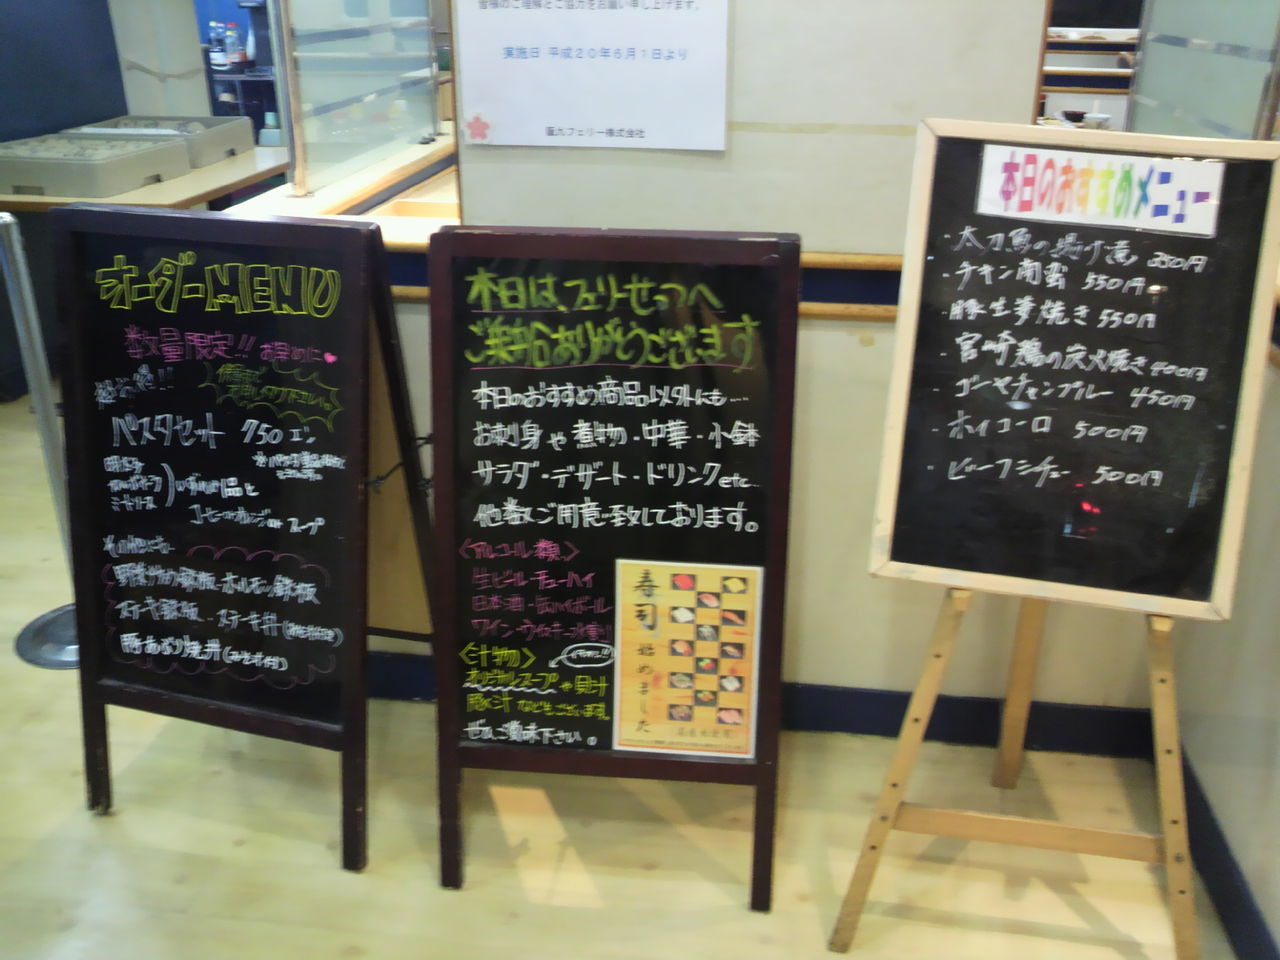 皆様のご理解とご協力をお願い申し上げます。
実施日 平成20年6月1日より
阪九フェリー株式会社
オーダーMENU
数量限定!! お早めに
パスタセット 750エン
いずれか1品と
スープ
ステーキ鉄板・ステーキ丼
豚あぶり焼丼(みそ汁付)
本日は、フェリーせっつへ
ご乗船ありがとうございます
本日のおすすめ商品以外にも…
お刺身や煮物・中華・小鉢
サラダ・デザート・ドリンクetc…
他数々ご用意致しております。
<アルコール類>
生ビール・チューハイ
日本酒・缶ハイボール
ワイン・ウィスキー
<汁物>
オリジナルスープや貝汁
豚汁などもございます。
ぜひご賞味下さい。
寿司
始めました
本日のおすすめメニュー
・太刀魚の揚げ煮 350円
・チキン南蛮 550円
・豚生姜焼き 550円
・宮崎鶏の炭火焼き
・ゴーヤチャンプルー 450円
・ホイコーロ 500円
・ビーフシチュー 500円